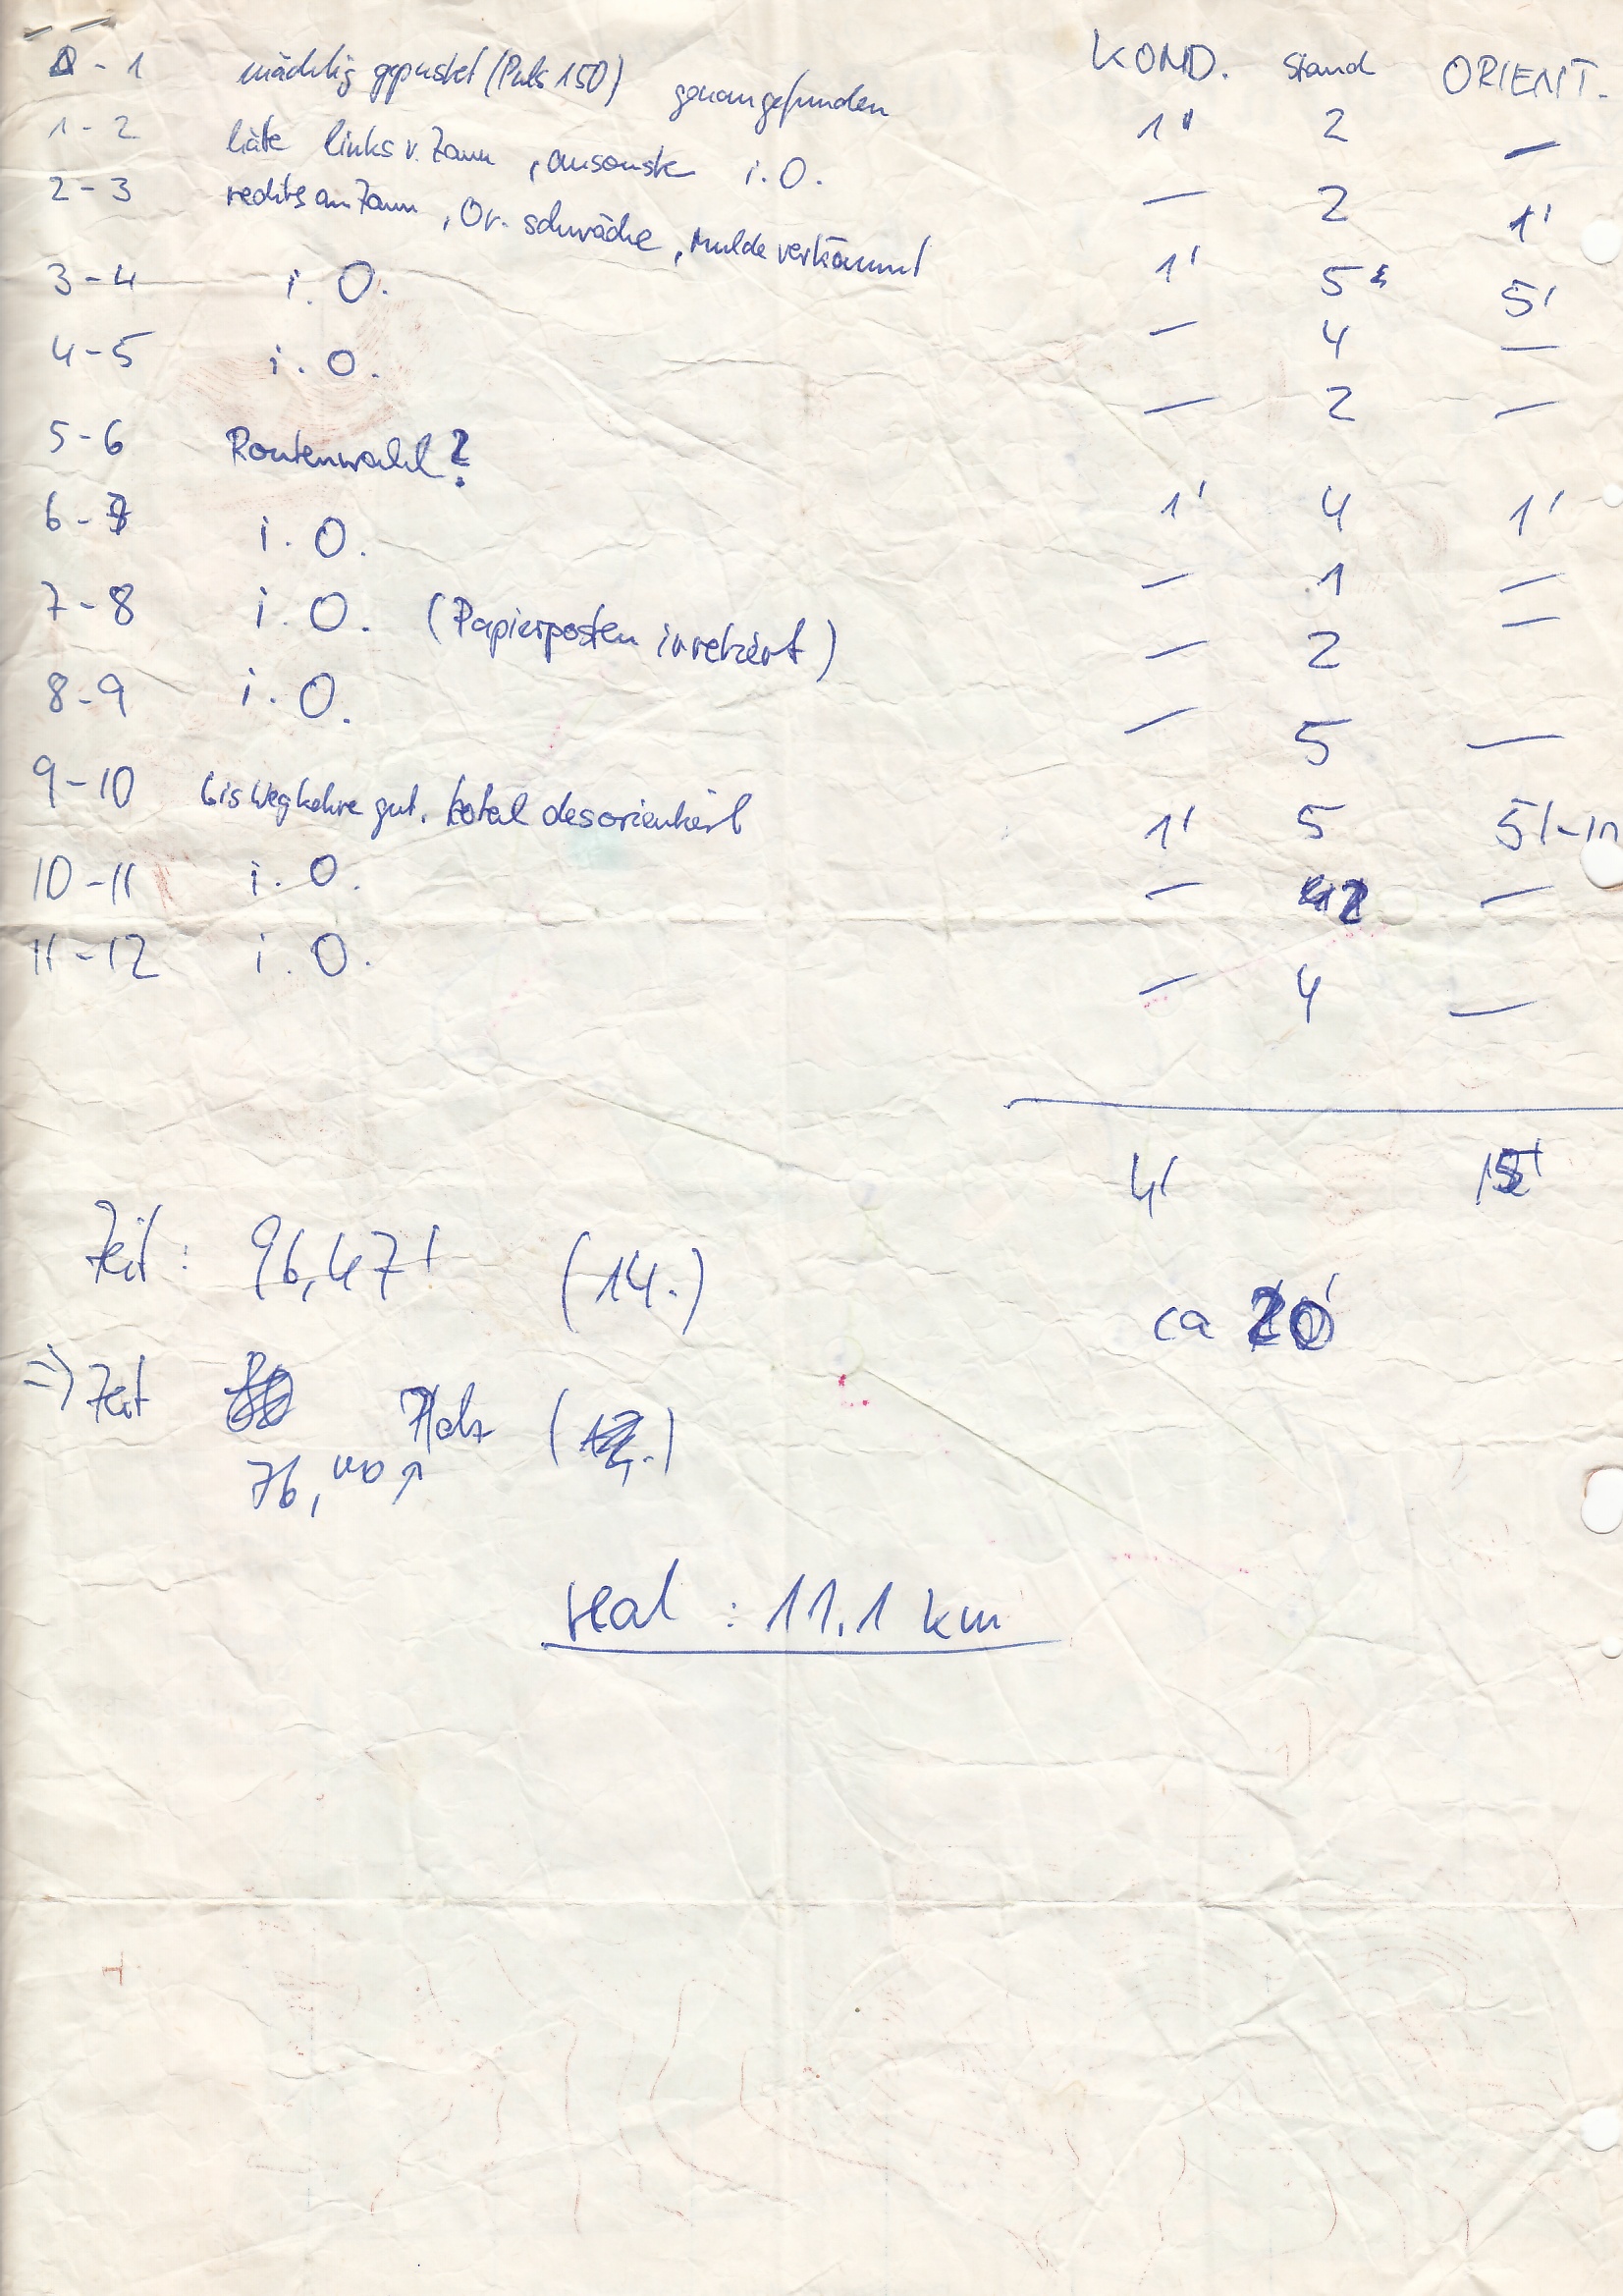 KOND. Stand ORIENT.
0 - 1 mächtig gepustet (Puls 150) genau angefunden 1' 2 —
1 - 2 häte links v. Zaun, ansonste i.O. — 2 1'
2 - 3 rechts am Zaun, Or. schwäche, Mulde verkämmt 1' 5 5'
3 - 4 i.O. — 4 —
4 - 5 i.O. — 2 —
5 - 6 Routenwahl? 1' 4 1'
6 - 7 i.O. — 1 —
7 - 8 i.O. (Papierposten irretiert) — 2 —
8 - 9 i.O. — 5 —
9 - 10 bis Wegkehre gut. total desorientiert 1' 5 5'-10
10 - 11 i.O. — —
11 - 12 i.O. — 4 —
4' 15'
Zeit: 96,47' (14.)
ca 20'
⇒ Zeit Platz
76,
real: 11.1 km